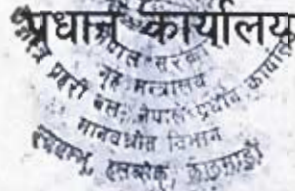 प्रधान कार्यालय
नेपाल सरकार
गृह मन्त्रालय
सशस्त्र प्रहरी बल, नेपाल प्रधान कार्यालय
मानवस्रोत विभाग
हलचोक, काठमाडौं